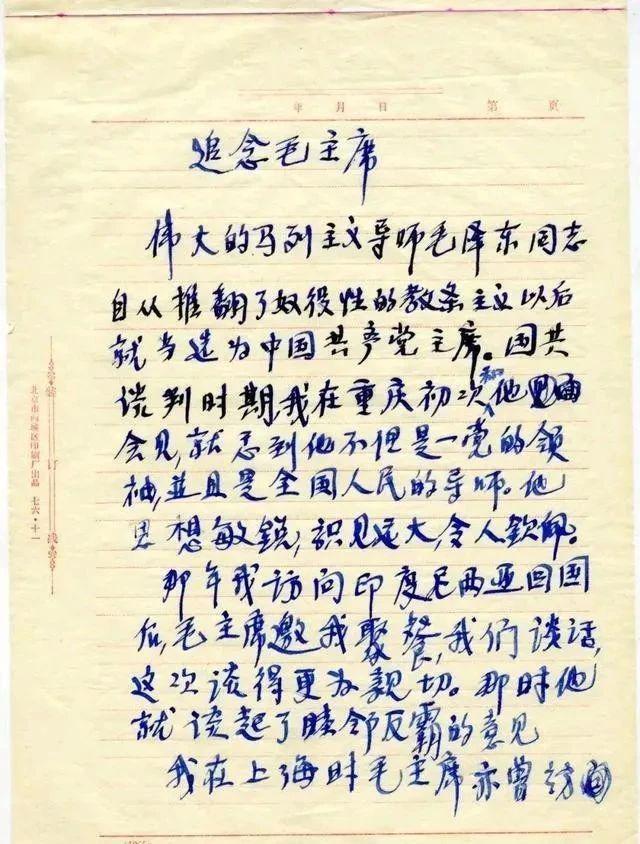 年 月 日 第 页
追念毛主席
伟大的马列主义导师毛泽东同志
自从推翻了奴役性的教条主义以后
就当选为中国共产党主席。国共
谈判时期,我在重庆初次和他
会见,就忎到他不但是一党的领
袖,並且是全国人民的导师。他
思想敏锐,识见远大,令人钦佩。
那年我访问印度尼西亚回国
后,毛主席邀我聚餐,我们谈话,
这次谈得更为親切。那时他
就谈起了睦邻反霸的意见
我在上海时毛主席亦曾访
装 订 线
北京市西城区印刷厂出品 七六·十一